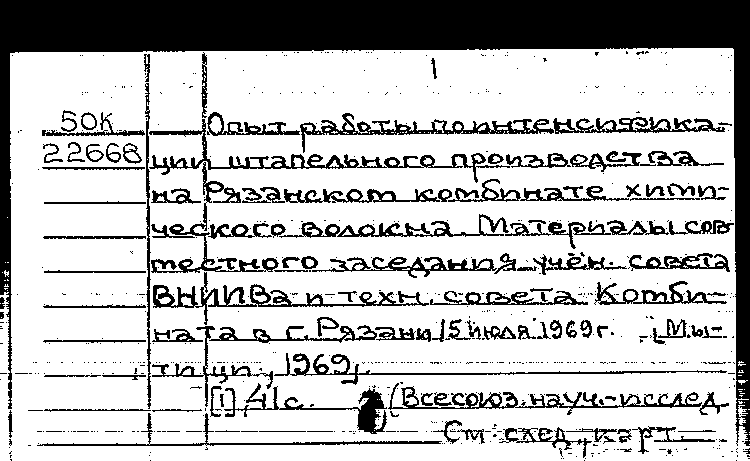 1
50К
22668
Опыт работы по интенсифика-
ции штапельного производства
на Рязанском комбинате хими-
ческого волокна. Материалы сов-
местного заседания учён. совета
ВНИИВа и техн. совета Комби-
ната в г. Рязани 15 июля 1969 г. [Мы-
тищи, 1969].
[1], 41 с. (Всесоюз. науч.-исслед.
См. след. карт.